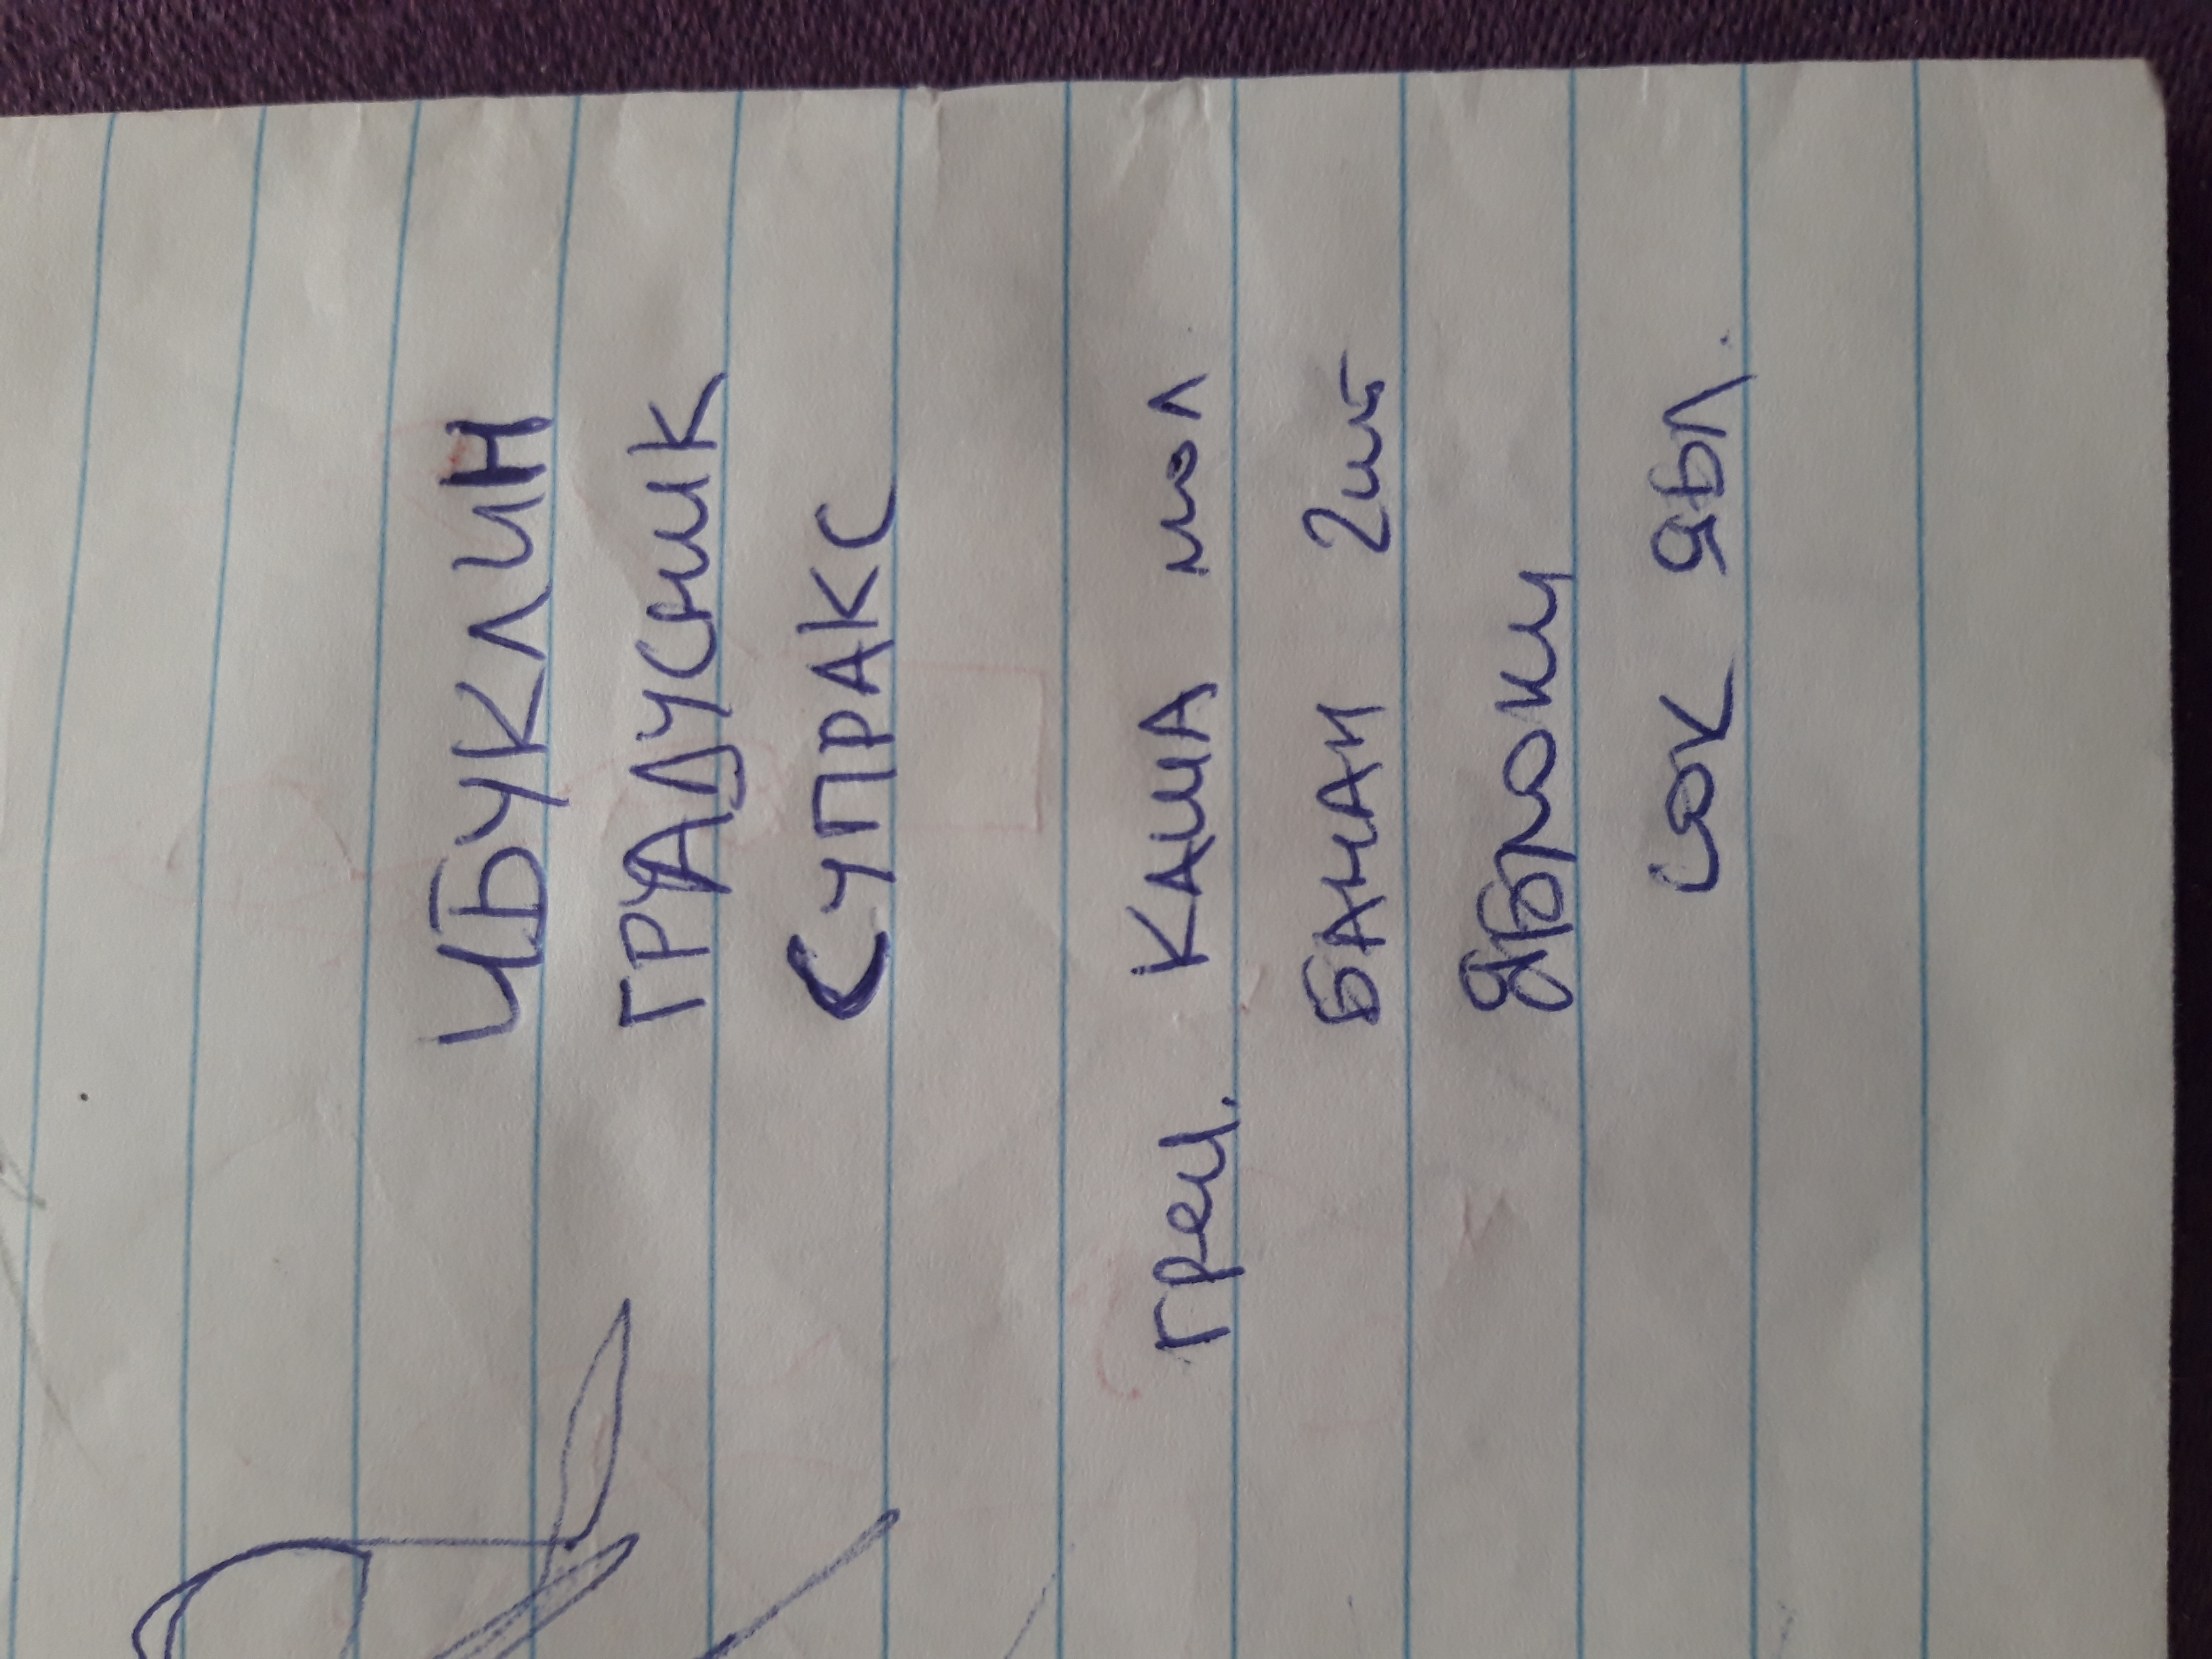 ИБУКЛИН
ГРАДУСНИК
СУПРАКС
греч. КАША мол
БАНАН 2шт
Яблоки
сок ябл.